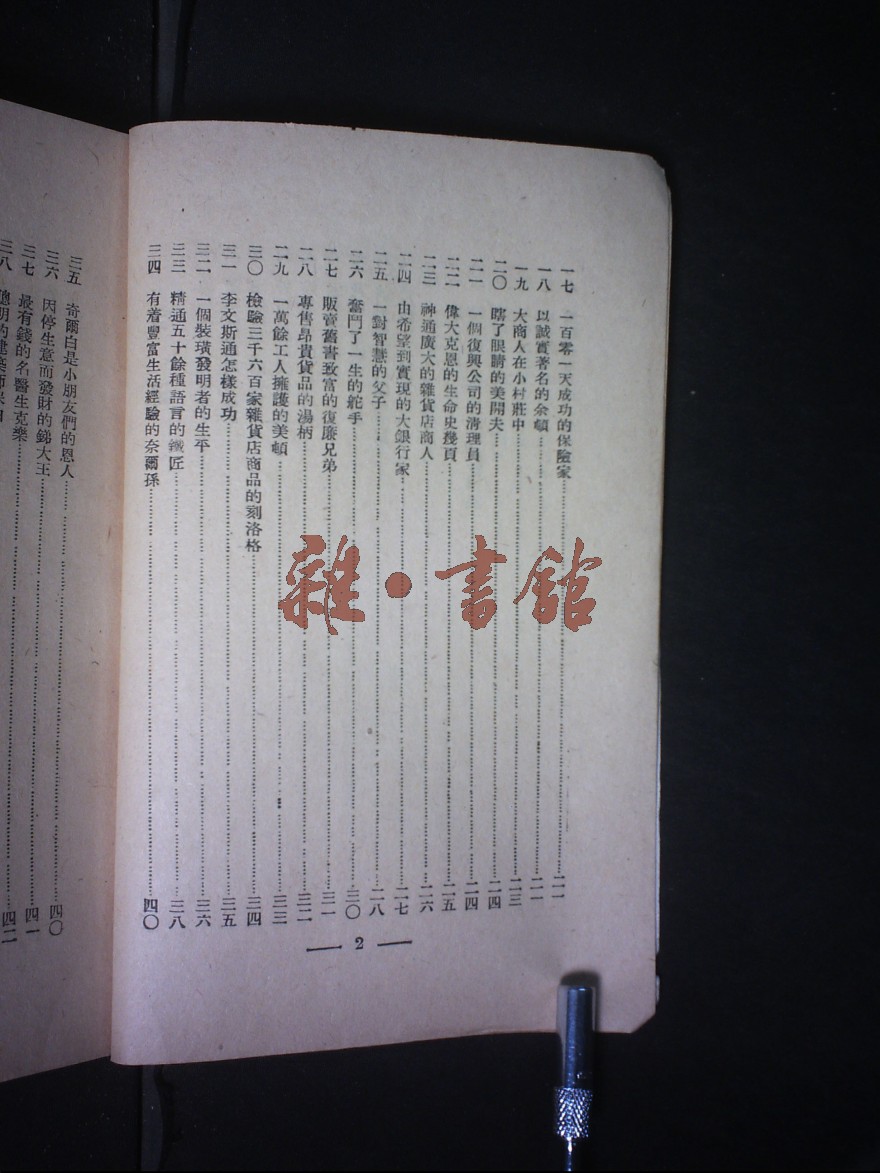 一七 一百零一天成功的保險家……二一
一八 以誠實著名的余頓……二一
一九 大商人在小村莊中……二三
二〇 瞎了眼睛的美開夫……二四
二一 一個復興公司的清理員……二四
二二 偉大克恩的生命史幾頁……二五
二三 神通廣大的雜貨店商人……二六
二四 由希望到實現的大銀行家……二七
二五 一對智慧的父子……二八
二六 奮鬥了一生的舵手……三〇
二七 販賣舊書致富的復廉兄弟……三一
二八 專售昂貴貨品的湯柄……三二
二九 一萬餘工人擁護的美頓……三三
三〇 檢驗三千六百家雜貨店商品的刻洛格……三四
三一 李文斯通怎樣成功……三五
三二 一個裝璜發明者的生平……三六
三三 精通五十餘種語言的鐵匠……三八
三四 有着豐富生活經驗的奈爾孫……四〇
2
三五 奇爾白是小朋友們的恩人……四〇
三六 因停生意而發財的錫大王……四一
三七 最有錢的名醫生克樂……四二
三八 聰明的建築師
雜·書館